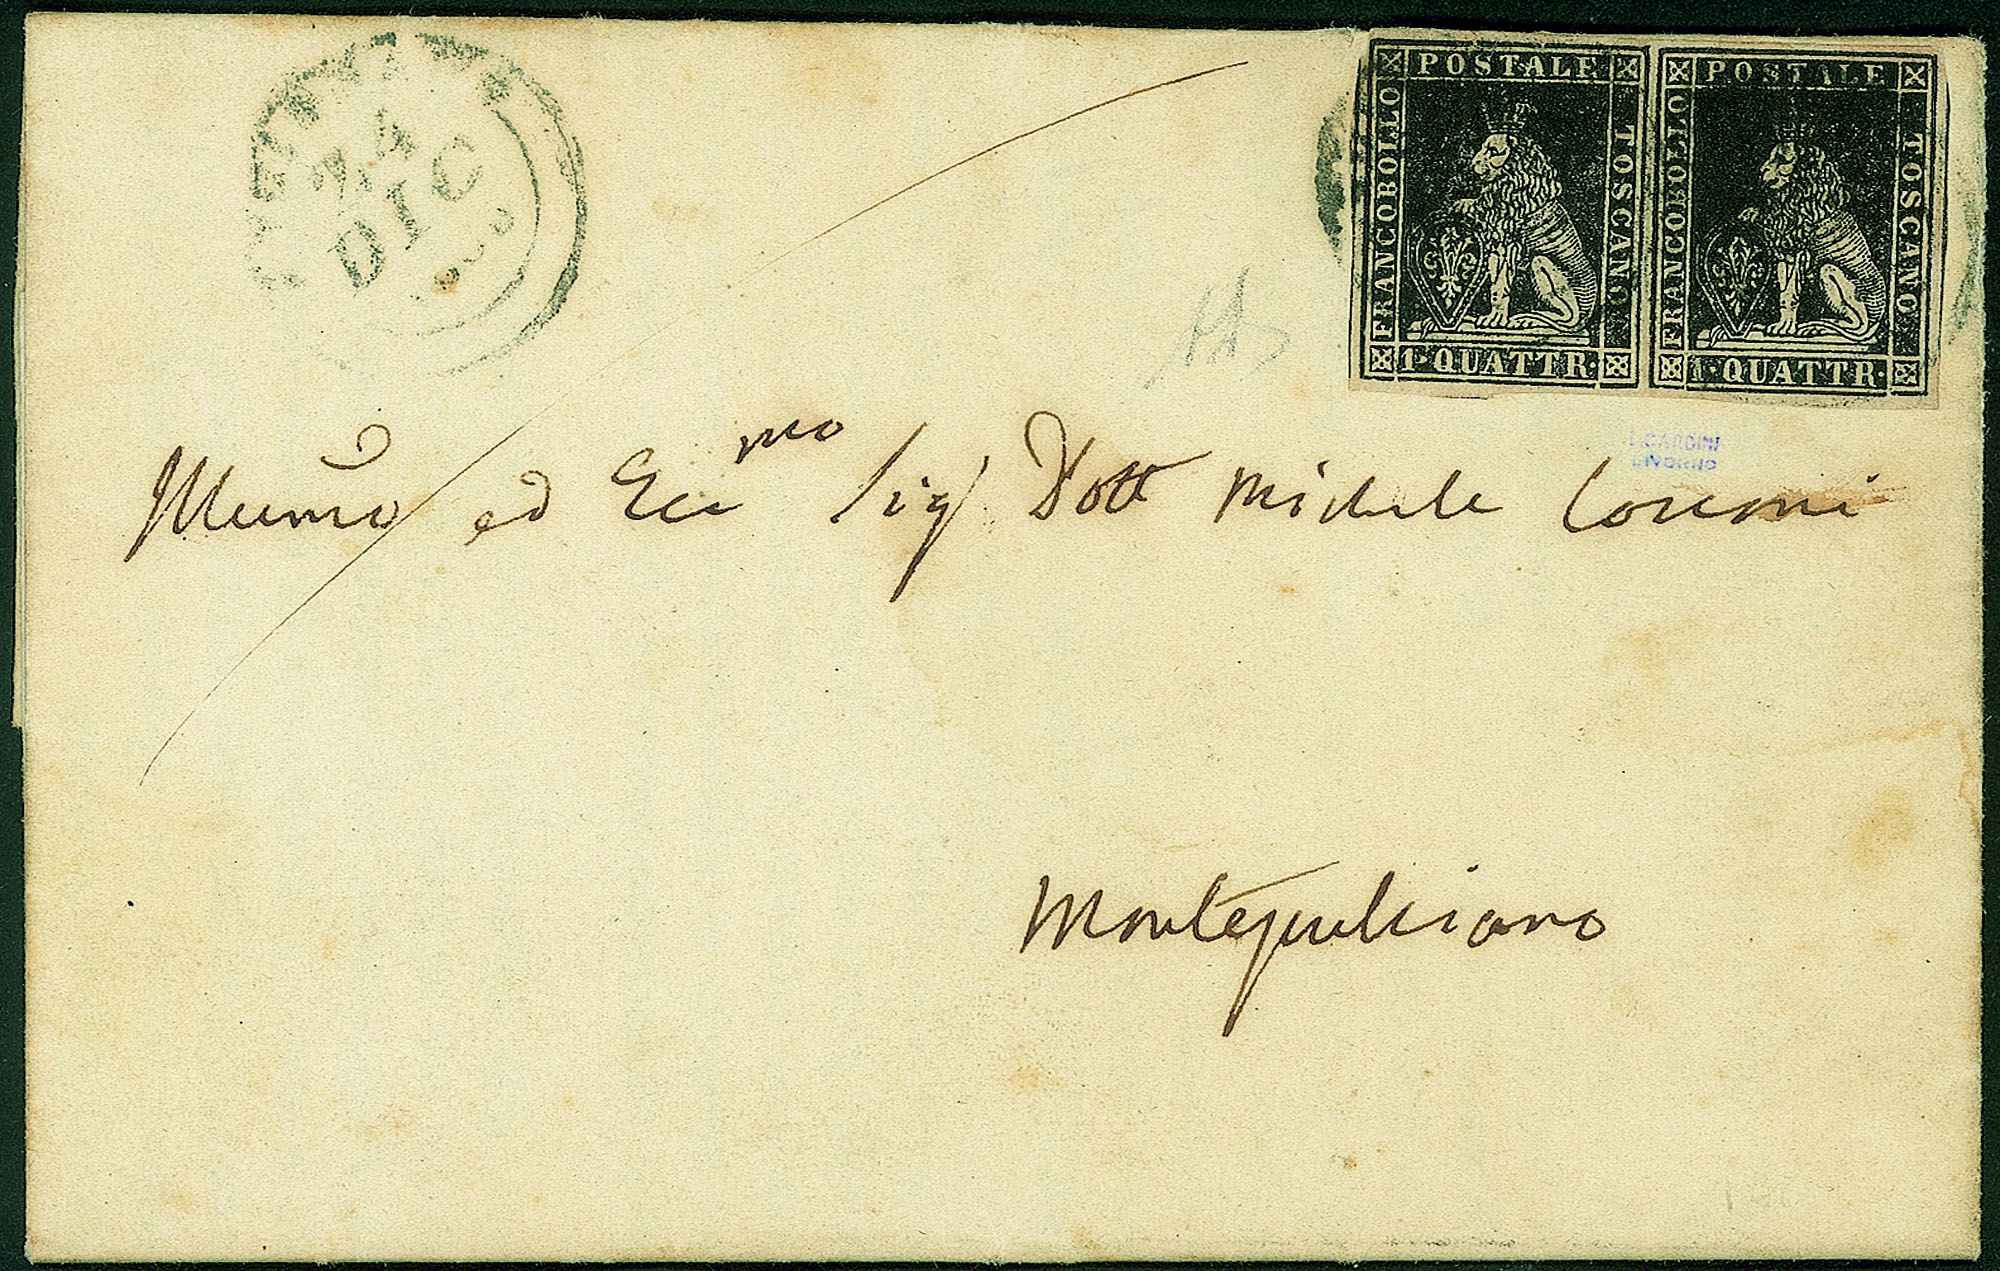 POSTALE
FRANCOBOLLO
TOSCANO
1·QUATTR·
POSTALE
FRANCOBOLLO
TOSCANO
1·QUATTR·
24
DIC
CARDINI
LIVORNO
ed Ecc mo Sig Dott Michele
Montepulciano